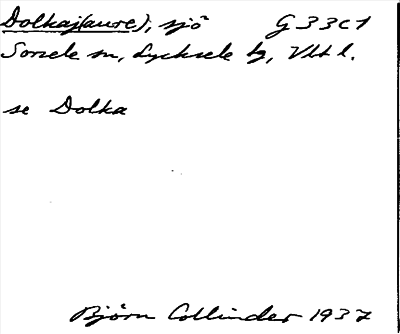 Dolkaj(aure), sjö G 33 C 1
Sorsele sn, Lycksele tg, Vbtl.
se Dolka
Björn Collinder 1937